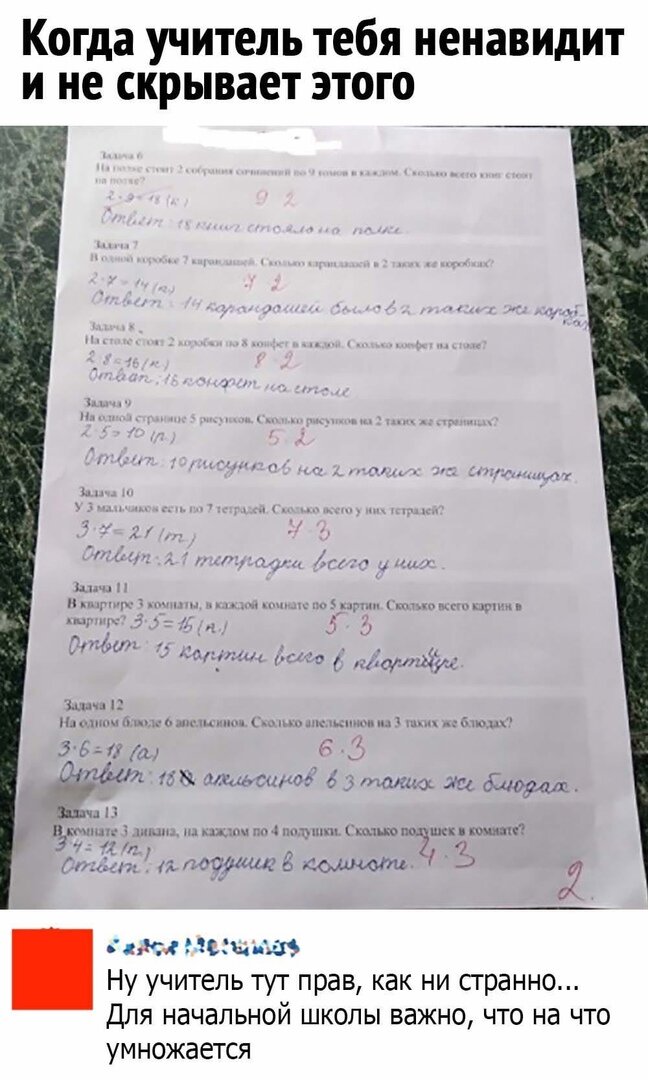 Когда учитель тебя ненавидит
и не скрывает этого
Задача 6
На полке стоит 2 собрания сочинений по 9 томов в каждом. Сколько всего книг стоит
на полке?
2·9=18(к) 9 2
Ответ: 18 книг стояло на полке.
Задача 7
В одной коробке 7 карандашей. Сколько карандашей в 2 таких же коробках?
2·7=14(к) 7 2
Ответ: 14 карандашей было в 2 таких же короб-
ках
Задача 8
На столе стоят 2 коробки по 8 конфет в каждой. Сколько конфет на столе?
2·8=16(к) 8·2
Ответ: 16 конфет на столе
Задача 9
На одной странице 5 рисунков. Сколько рисунков на 2 таких же страницах?
2·5=10(р.) 5·2
Ответ: 10 рисунков на 2 таких же страницах.
Задача 10
У 3 мальчиков есть по 7 тетрадей. Сколько всего у них тетрадей?
3·7=21(т) 7·3
Ответ: 21 тетрадки всего у них.
Задача 11
В квартире 3 комнаты, в каждой комнате по 5 картин. Сколько всего картин в
квартире? 3·5=15(к.) 5·3
Ответ: 15 картин всего в
Задача 12
На одном блюде 6 апельсинов. Сколько апельсинов на 3 таких же блюдах?
3·6=18(а) 6·3
Ответ: 18 апельсинов в 3 таких же блюдах.
Задача 13
В комнате 3 дивана, на каждом по 4 подушки. Сколько подушек в комнате?
3·4=12(п.)
Ответ: 12 подушек в комноте. 4·3
2.
Ну учитель тут прав, как ни странно...
Для начальной школы важно, что на что
умножается